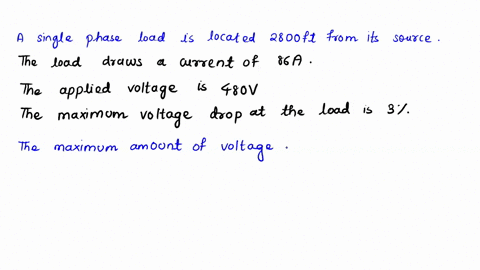 A single phase load is located 2800ft from its source.
The load draws a current of 86A.
The applied voltage is 480V
The maximum voltage drop at the load is 3%.
The maximum amount of voltage.